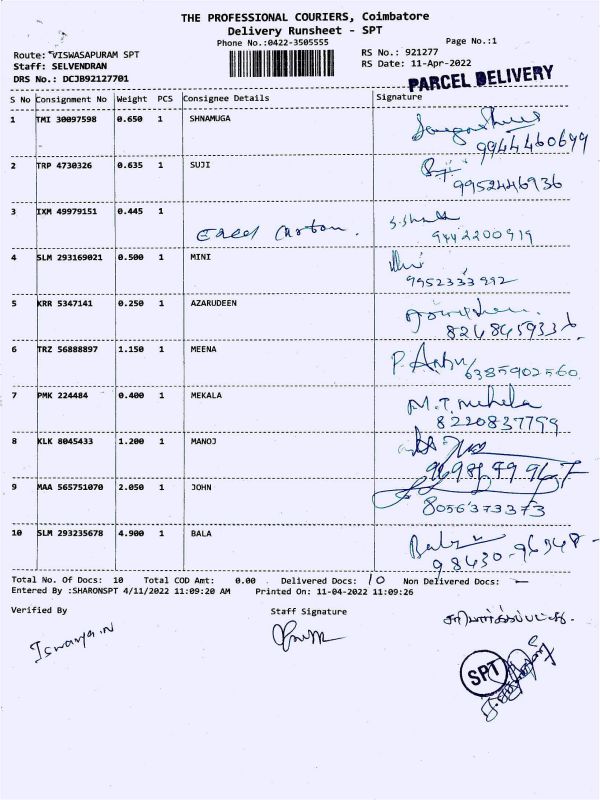 THE PROFESSIONAL COURIERS, Coimbatore
Delivery Runsheet - SPT
Phone No.:0422-3505555
Page No.:1
Route: VISWASAPURAM SPT
RS No.: 921277
Staff: SELVENDRAN
RS Date: 11-Apr-2022
DRS No.: DCJB92127701
PARCEL DELIVERY
S No Consignment No Weight PCS Consignee Details Signature
1 TMI 30097598 0.650 1 SHNAMUGA
9944460699
2 TRP 4730326 0.635 1 SUJI
9952446936
3 IXM 49979151 0.445 1
9442200919
4 SLM 293169021 0.500 1 MINI
9952333992
5 KRR 5347141 0.250 1 AZARUDEEN
8248459336
6 TRZ 56888897 1.150 1 MEENA
P. Anbu 6385902560
7 PMK 224484 0.400 1 MEKALA
M.T. mekela
8220837799
8 KLK 8045433 1.200 1 MANOJ
9 MAA 565751070 2.050 1 JOHN
8056373373
10 SLM 293235678 4.900 1 BALA
98430-96348
Total No. Of Docs: 10 Total COD Amt: 0.00 Delivered Docs: 10 Non Delivered Docs: -
Entered By :SHARONSPT 4/11/2022 11:09:20 AM Printed On: 11-04-2022 11:09:26
Verified By Staff Signature
சரிபார்க்கப்பட்டது.
Iswarya.N
SPT